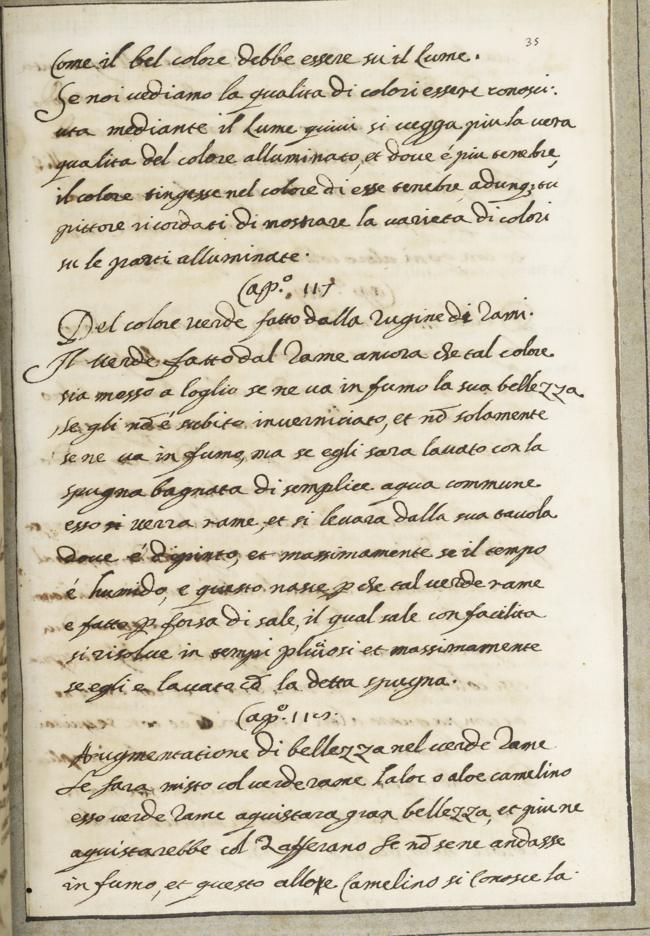 35
Come il bel colore debbe essere su il Lume.
Se noi vediamo la qualita di colori essere conosci:
uta mediante il Lume quivi si vegga piu la vera
qualita del colore alluminato, et dove é piu tenebre
il colore tingesse nel colore di esse tenebre adunq; tu
pittore ricordati di mostrare la varietà di colori
su le parti alluminate.
Cap.º 117
Del colore verde fatto dalla Rugine di Rami.
Il verde fatto dal Rame ancora che tal colore
sia messo a loglio se ne va in fumo la sua bellezza
se gli nō é subito inverniciato, et nō solamente
se ne va in fumo, ma se egli sara lavato con la
spugna bagnata di semplice aqua commune
esso verra rame, et si levara dalla sua tavola
dove é dipinto, et massimamente se il tempo
é humido, e questo nasce p che tal verde rame
e fatto p forsa di sale, il qual sale con facilita
si risolve in tempi pluiosi et massimamente
se egli e lavato cō la detta spugna.
Cap.º 118.
Augmentatione di bellezza nel verde Rame
Se sara misto col verde rame laloe o aloe camelino
esso verde Rame aquistara gran bellezza, et piu ne
aquistarebbe col Zafferano se nō se ne andasse
in fumo, et questo alloe Camelino si Conosce la